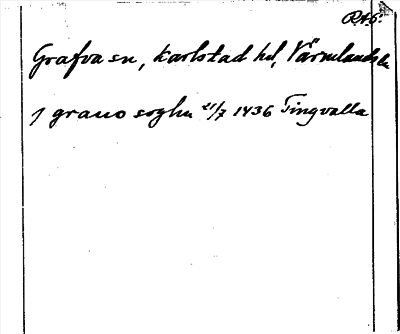 R.A.S.
Grafva sn, Karlstad hd, Värmlands ln
1 grauo soghn 21/7 1436 Tingvalla